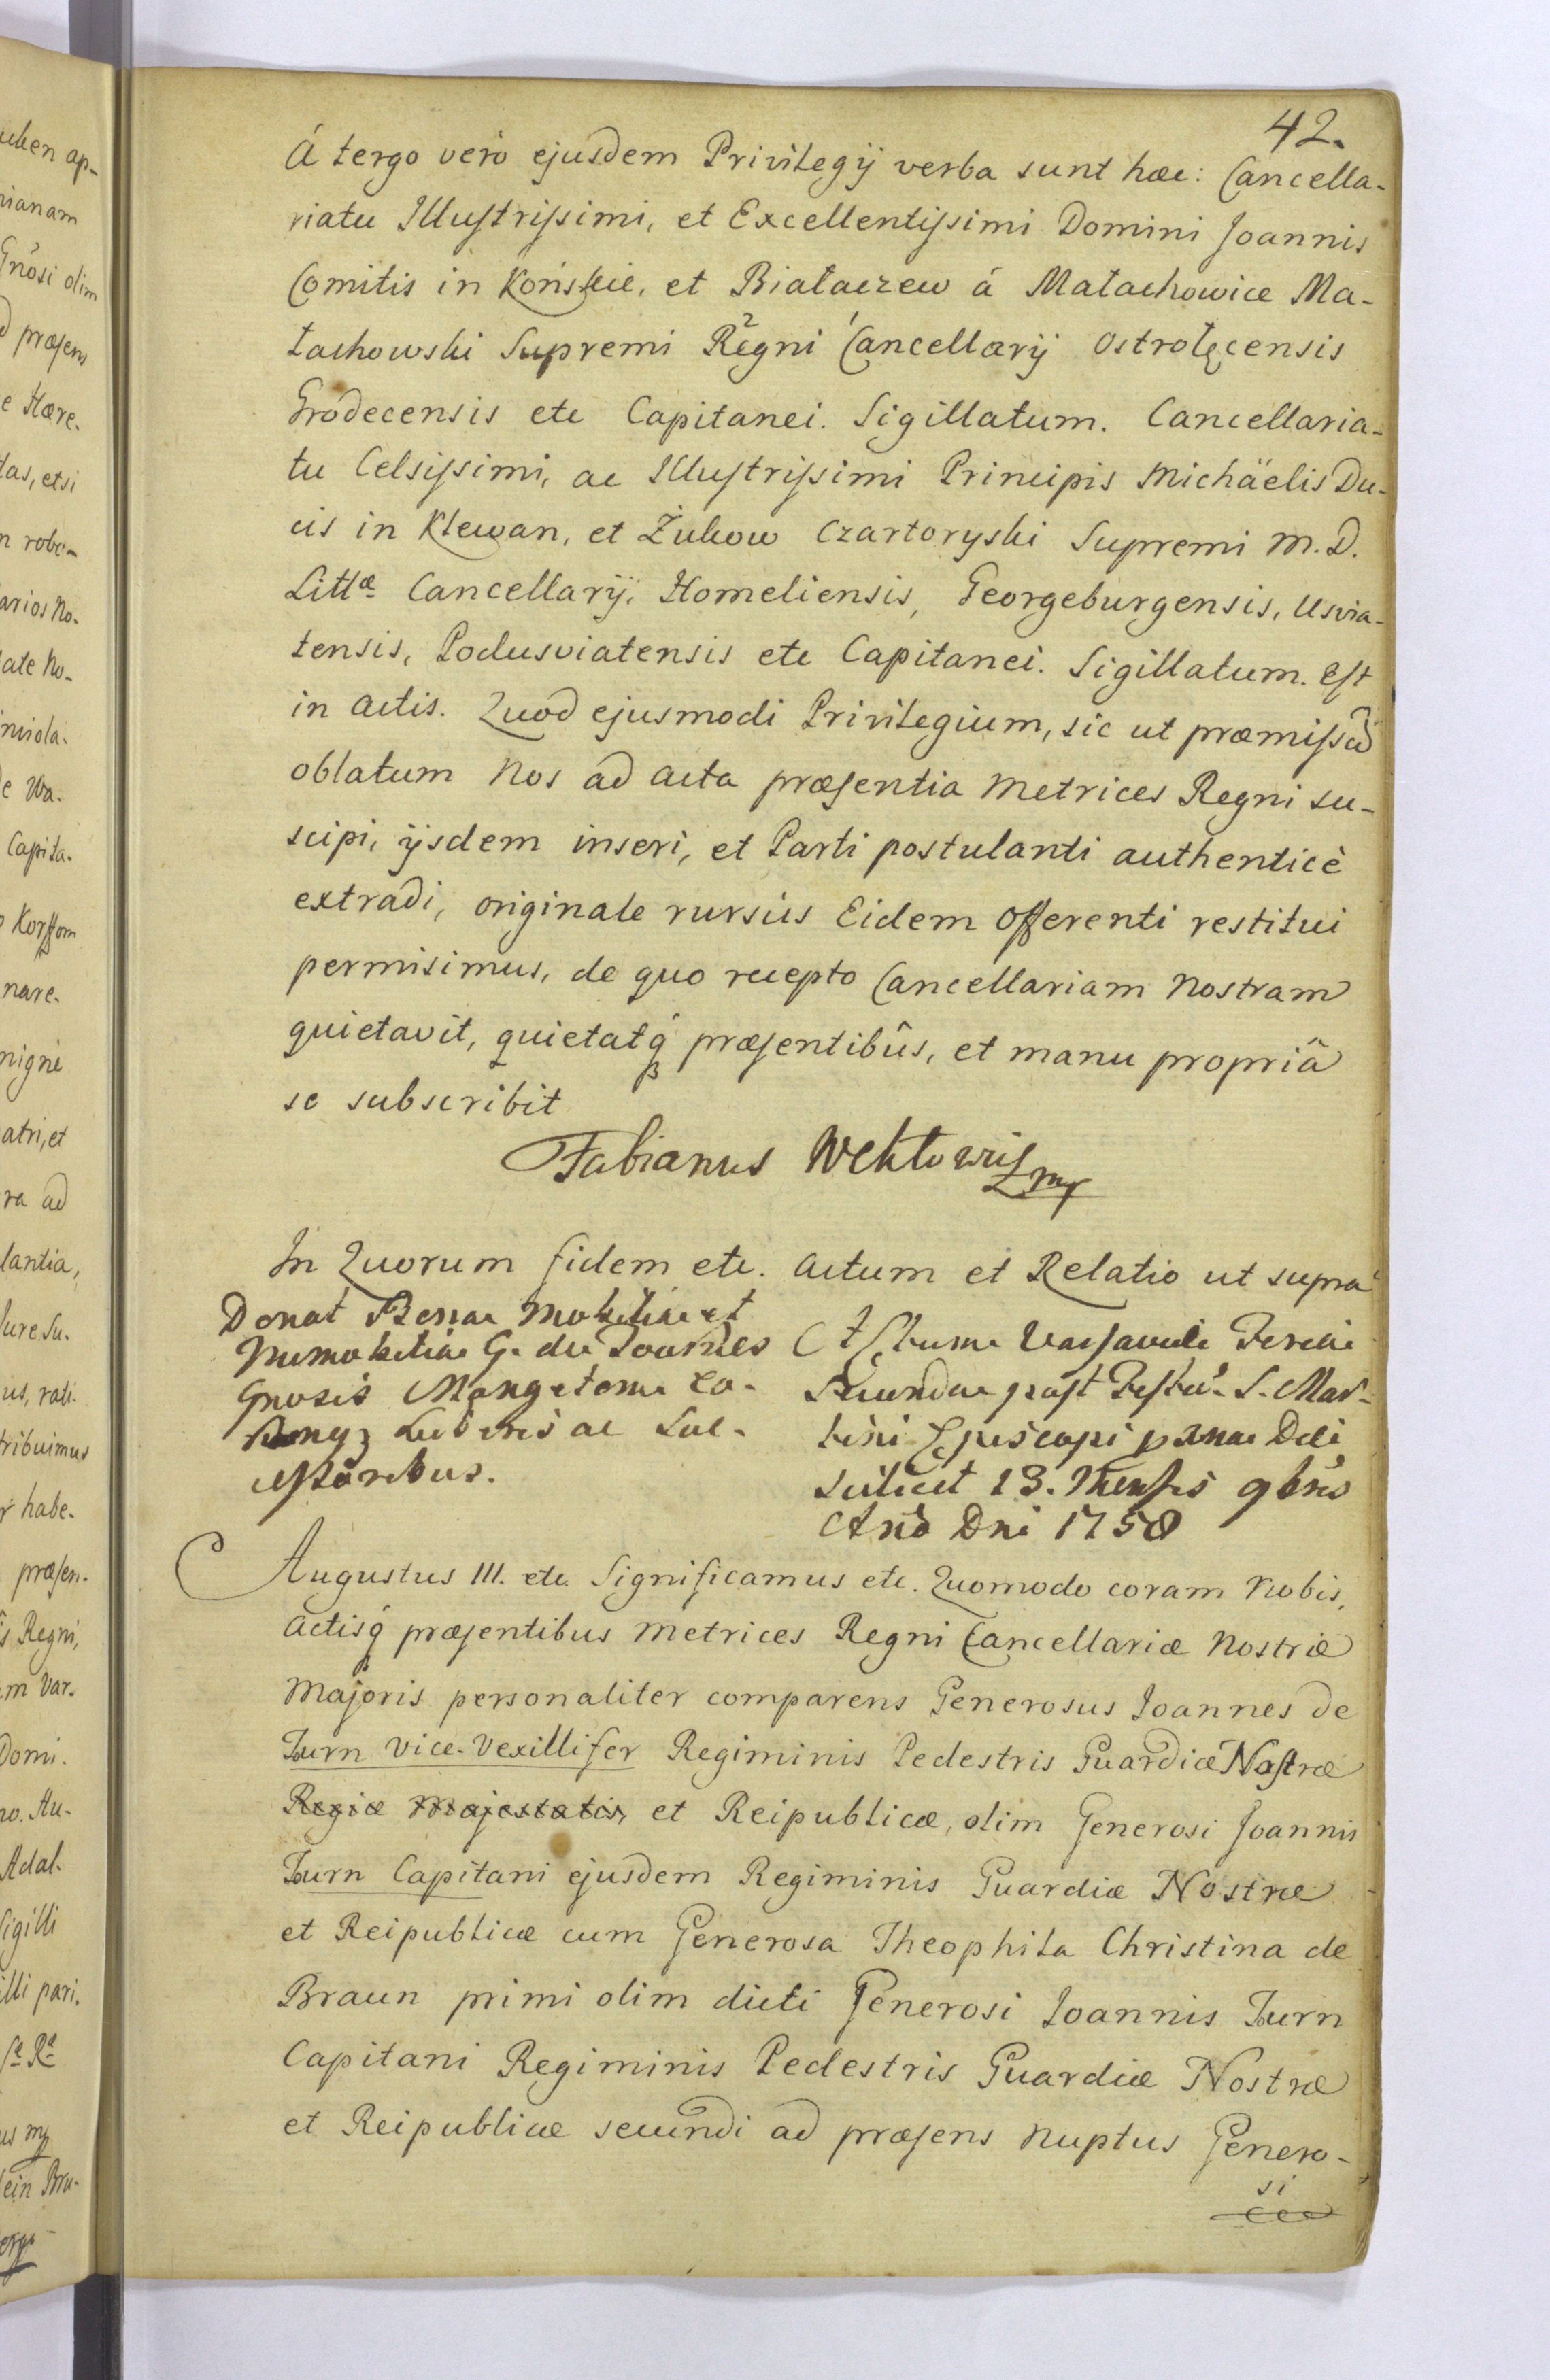 42.
á tergo verò ejusdem Privilegij verba sunt hæc: Cancella-
riatu Illustrissimi, et Excellentissimi Domini Joannis
Comitis in Końskie, et Białaczew á Małachowice Ma-
łachowski Supremi Regni Cancellarij Ostrołęcensis
Grodecensis etc Capitanei. Sigillatum. Cancellaria-
tu Celsissimi, ac Illustrissimi Principis Michäelis Du-
cis in Klewan, et Żukow Czartoryski Supremi M. D.
Littæ Cancellarij, Homeliensis, Georgeburgensis, Usvia-
tensis, Podusviatensis etc Capitanei. Sigillatum. Est
in Actis. Quod ejusmodi Privilegium, sic ut præmissũ
oblatum Nos ad Acta præsentia Metrices Regni su-
scipi, ijsdem inseri, et Parti postulanti authenticè
extradi, originale rursùs Eidem Offerenti restitui
permisimus, de quo recepto Cancellariam Nostram
quietavit, quietatq́ præsentibûs, et manu propriâ
se subscribit
Fabianus Wektowi mp
In Quorum fidem etc. Actum et Relatio ut supra
Donat Bona Mobilia et
Immobilia G. de Tournes
Gnosis Mangetom Co-
njug Liberis ac Suc-
essoribus.
Actum Varsaviæ Feria
Secunda post Festũ S. Mar-
tini Episcopi Dei
scilicet 13. Mensis 9bris
Anõ Dni 1758
Augustus III. etc. Significamus etc. Quomodo coram Nobis,
Actisq́ præsentibus Metrices Regni Cancellariæ Nostræ
Majoris personaliter comparens Generosus Joannes de
Turn Vice-Vexillifer Regiminis Pedestris Guardiæ Nostræ
Regiæ Majestatis, et Reipublicæ, olim Generosi Joannis
Turn Capitani ejusdem Regiminis Guardiæ Nostræ
et Reipublicæ cum Generosa Theophila Christina de
Braun primi olim dicti Generosi Joannis Turn
Capitani Regiminis Pedestris Guardiæ Nostræ
et Reipublicæ secundi ad præsens nuptus Genero-
si